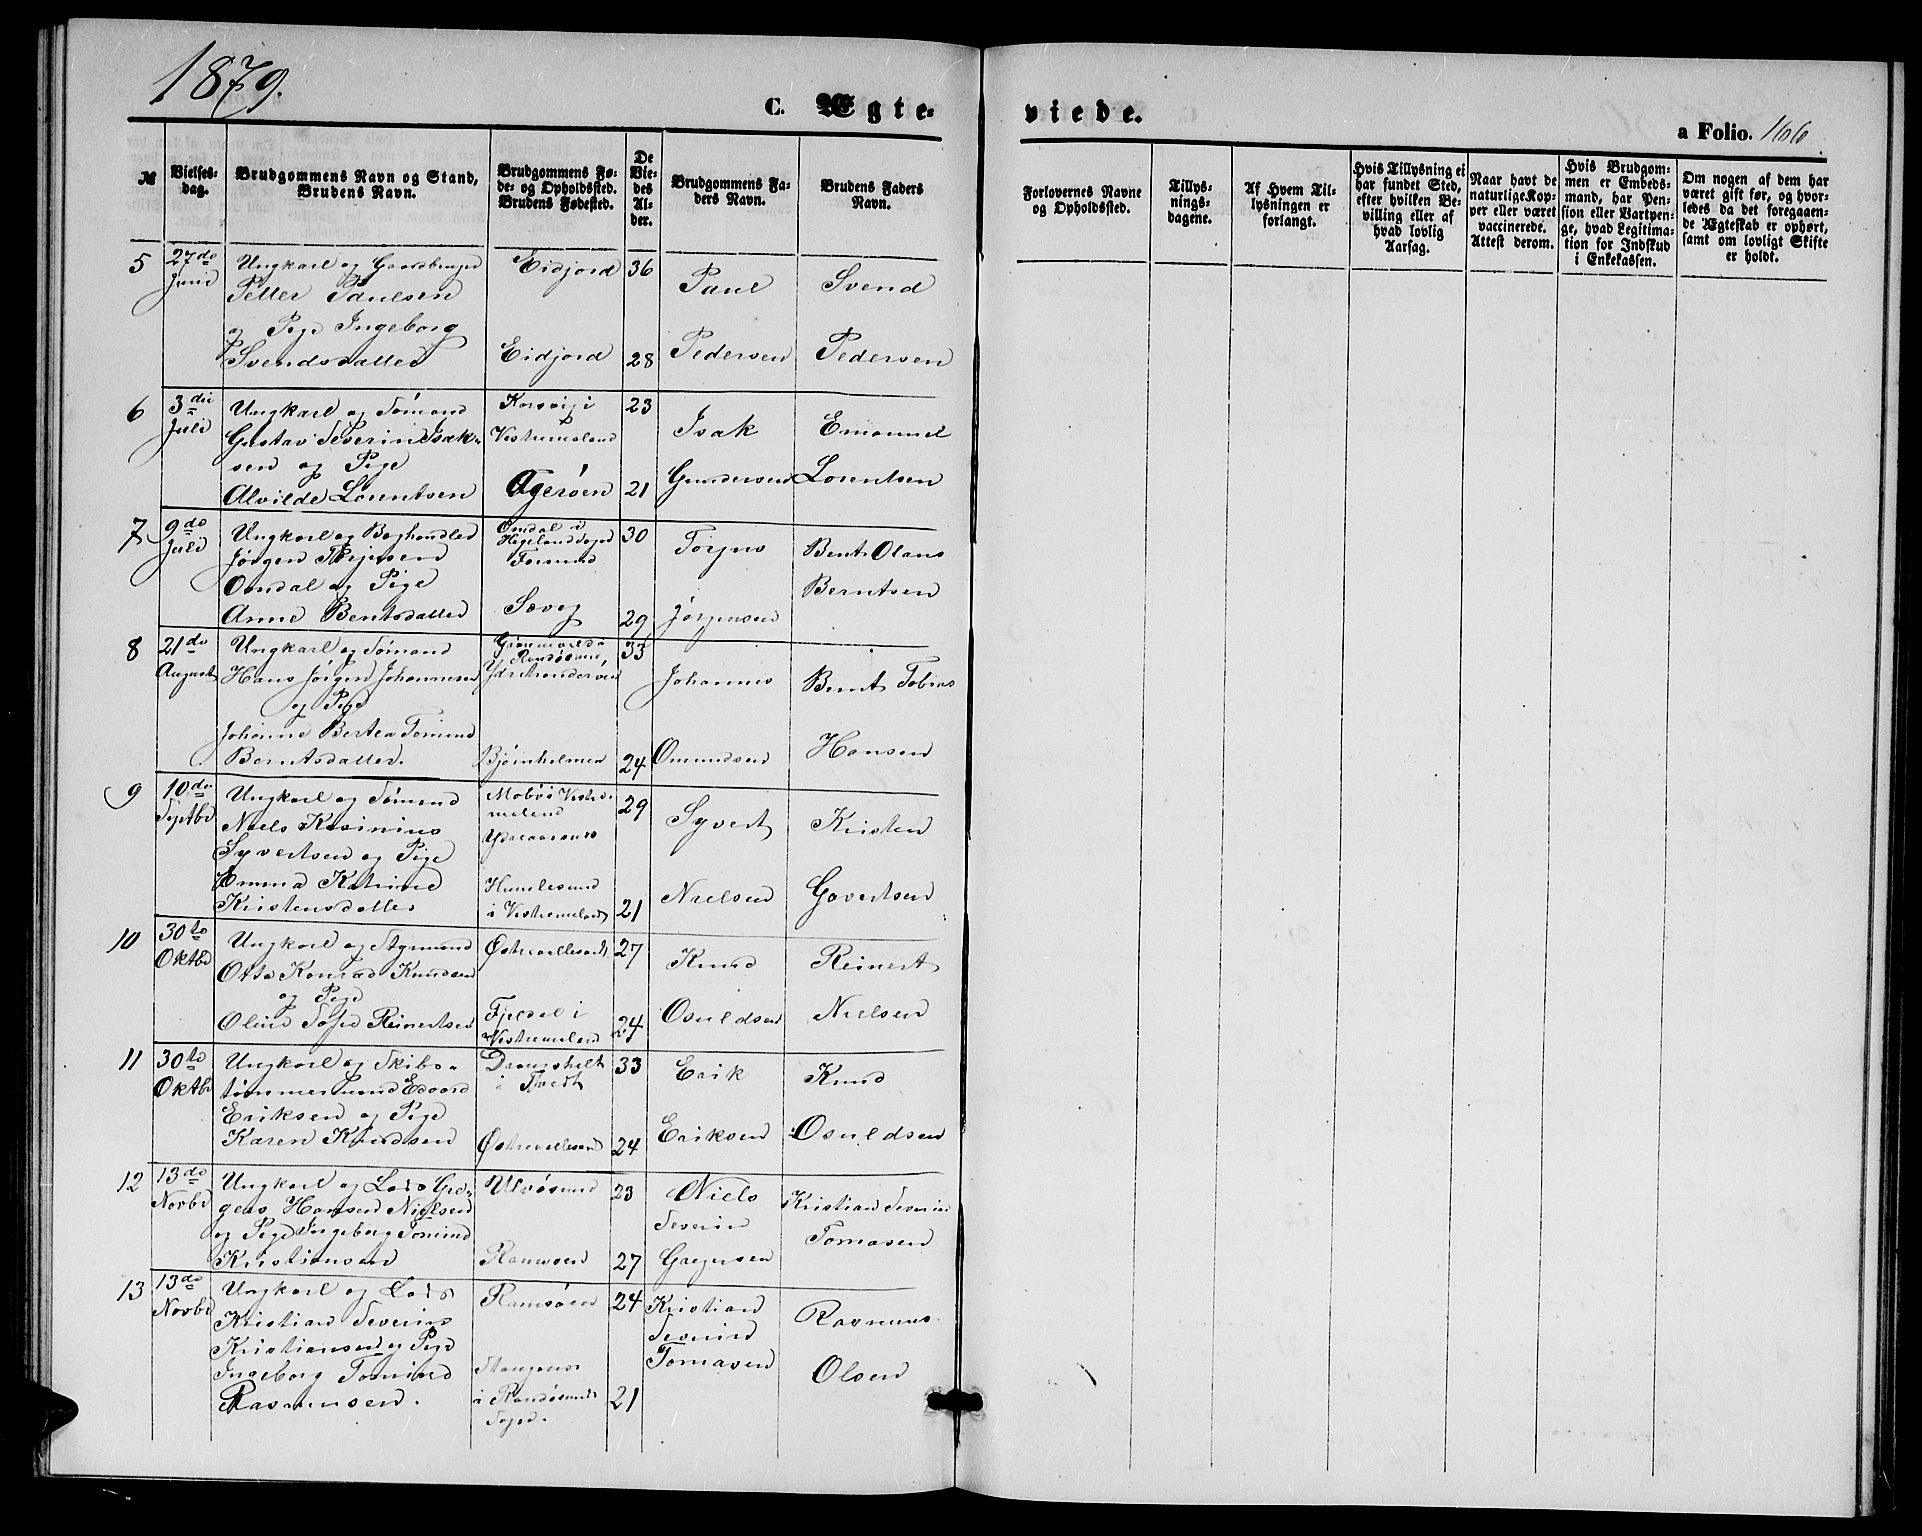 1879.
C. Ægte-
viede.
a Folio. 166.
№
Vielses-
dag.
Brudgommens Navn og Stand,
Brudens Navn.
Brudgommens Fø-
de- og Opholdssted.
Brudens Fødested.
De
Vie-
des
Al-
der.
Brudgommens Fa-
ders Navn.
Brudens Faders
Navn.
Forlovernes Navne
og Opholdssted.
Tillys-
nings-
dagene.
Af Hvem Til-
lysningen er
forlangt.
Hvis Tillysning ei
har fundet Sted,
efter hvilken Be-
villing eller af
hvad lovlig
Aarsag.
Naar havt de
naturlige Kop-
per eller været
vaccinerede.
Attest derom.
Hvis Brudgom-
men er Embeds-
mand, har Pen-
sion eller Vartpen-
ge, hvad Legitima-
tion for Indskud
i Enkekassen.
Om nogen af dem har
været gift før, og hvor-
ledes da det foregaaen-
de Ægteskab er ophørt,
samt om lovligt Skifte
er holdt.
5
27de
Juni
Ungkarl og Gaardbruger
Petter Paulsen
og Pige Ingeborg
Svendsdatter
Eidjord
Eidjord
36
28
Paul
Pedersen
Svend
Pedersen
6
3die
Juli
Ungkarl og Sømand
Gustav Severin Isak-
sen og Pige
Alvilde Lorentsen
Korsvig i
Vestremoland
Ågerøen
23
21
Isak
Gundersen
Emanuel
Lorentsen
7
9de
Juli
Ungkarl og Boghandler
Jørgen Terjesen
Omdal og Pige
Anne Bentsdatter
Omdal i
Hegeland Sogn
Sæveg
30
29
Jørgensen
Bent Olaus
Berntsen
8
21de
August
Ungkarl og Sømand
Hans Jørgen Johannesen
og Pige
Johanne Bertea Tomine
Berntsdatter.
Randøsund,
Bjørnholmen
33
24
Johannes
Omundsen
Bernt Tobias
Hansen
9
10de
Septbr
Ungkarl og Sømand
Niels
Syvertsen og Pige
Emma Katrine
Kristensdatter
moland
Humlesund
i Vestremoland
29
21
Syvert
Nielsen
Kristen
Govertsen
10
30te
Oktbr
Ungkarl og Styrmand
Otto Konrad Knudsen
og Pige
Oline Sofie Reinertsen
Østrevallesund
Fjeldal i
Vestremoland
27
24
Knud
Osuldsen
Reinert
Nielsen
11
30te
Oktbr
Ungkarl og Skibs-
tømmermand Edvard
Eriksen og Pige
Karen Knudsen
Drangsholt
i Tvedt
Østrevallesund
33
24
Erik
Eriksen
Knud
Osuldsen
12
13de
Novbr
Ungkarl og Lods Gre-
gers Hansen Nielsen
og Pige Ingeborg Tomine
Kristiansen
Ulvøsund
Ramsøen
23
27
Niels
Severin
Gregersen
Kristian Severin
Tomasen
13
13de
Novbr
Ungkarl og Lods
Kristian Severin
Kristiansen og Pige
Ingeborg Tomine
Rasmussen.
Ramsøen
Stangenes
i Randøsunds
Sogn.
24
21
Kristian
Severin
Tomasen
Rasmus
Olsen